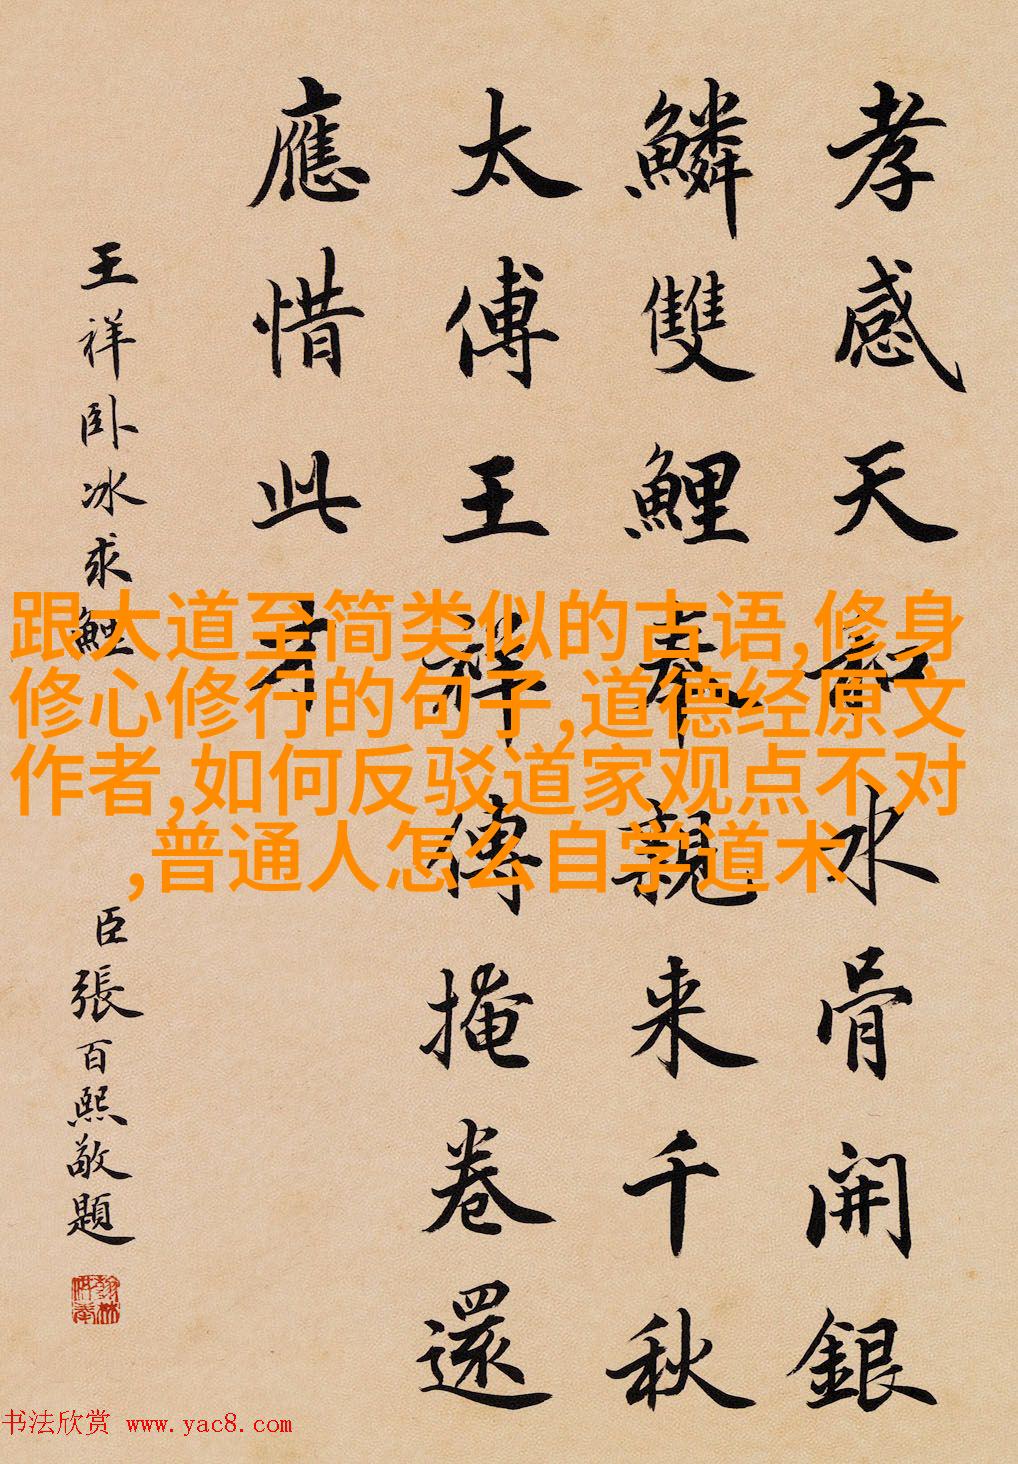 孝感天知水骨開銀
鱗雙鯉奉親来千秋
太傅王祥傳掩卷還
應惜此才
王祥卧冰求鯉
臣張百熙敬題
翰林供奉
跟大道至简类似的古语,修身
修心修行的句子,道德经原文
作者,如何反驳道家观点不对
,普通人怎么自学道术
书法欣赏 www.yac8.com